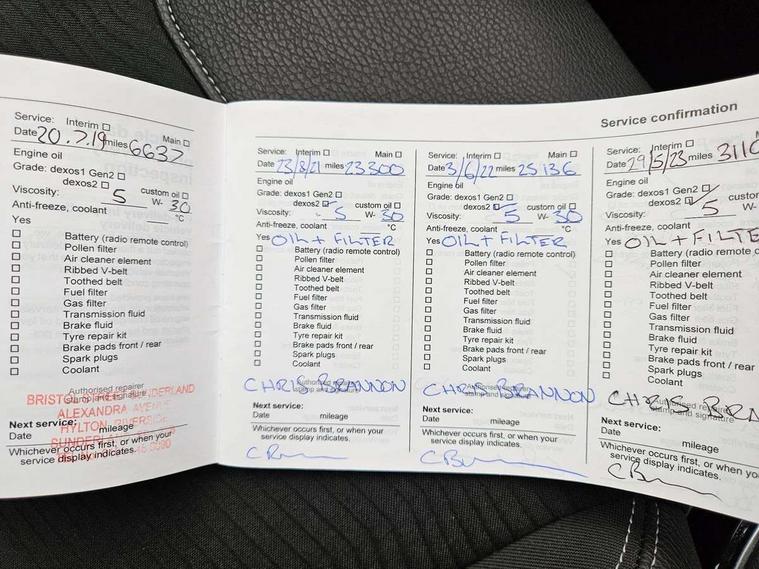 Service: Interim
Main
Date 20.7.19 miles 6637
Engine oil
Grade: dexos1 Gen2
dexos2 custom oil
Viscosity: 5 W- 30
Anti-freeze, coolant °C
Yes
Battery (radio remote control)
Pollen filter
Air cleaner element
Ribbed V-belt
Toothed belt
Fuel filter
Gas filter
Transmission fluid
Brake fluid
Tyre repair kit
Brake pads front / rear
Spark plugs
Coolant
Authorised repairer
stamp and signature
ALEXANDRA AVENUE
HYLTON RIVERSIDE
Next service:
Date mileage
Whichever occurs first, or when your
service display indicates.
Service confirmation
Service: Interim Main
Date 23/8/21 miles 23300
Engine oil
Grade: dexos1 Gen2
dexos2 custom oil
Viscosity: 5 W- 30
Anti-freeze, coolant °C
Yes OIL + FILTER
Battery (radio remote control)
Pollen filter
Air cleaner element
Ribbed V-belt
Toothed belt
Fuel filter
Gas filter
Transmission fluid
Brake fluid
Tyre repair kit
Brake pads front / rear
Spark plugs
Coolant
Authorised repairer
stamp and signature
CHRIS BRANNON
Next service:
Date mileage
Whichever occurs first, or when your
service display indicates.
Service: Interim Main
Date 3/6/22 miles 25136
Engine oil
Grade: dexos1 Gen2
dexos2 custom oil
Viscosity: 5 W- 30
Anti-freeze, coolant °C
Yes OIL + FILTER
Battery (radio remote control)
Pollen filter
Air cleaner element
Ribbed V-belt
Toothed belt
Fuel filter
Gas filter
Transmission fluid
Brake fluid
Tyre repair kit
Brake pads front / rear
Spark plugs
Coolant
Authorised repairer
stamp and signature
CHRIS BRANNON
Next service:
Date mileage
Whichever occurs first, or when your
service display indicates.
Service: Interim
Date 29/5/23 miles 3110
Engine oil
Grade: dexos1 Gen2
dexos2 custo
Viscosity: 5 W-
Anti-freeze, coolant
Yes OIL + FILTE
Battery (radio remote c
Pollen filter
Air cleaner element
Ribbed V-belt
Toothed belt
Fuel filter
Gas filter
Transmission fluid
Brake fluid
Tyre repair kit
Brake pads front / rear
Spark plugs
Coolant
Authorised repairer
stamp and signature
CHRIS BRA
Next service:
Date mileage
Whichever occurs first, or when yo
service display indicates.